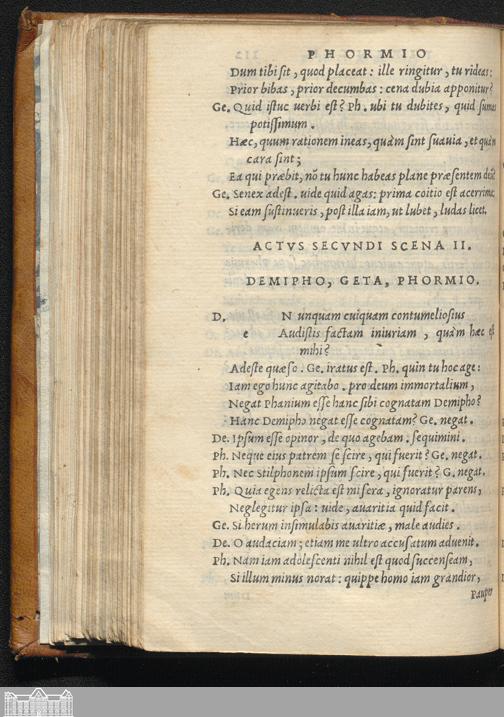 PHORMIO
Dum tibi sit, quod placeat: ille ringitur, tu rideas:
Prior bibas, prior decumbas: cena dubia apponitur?
Ge. Quid istuc uerbi est? Ph. ubi tu dubites, quid sumas
potissimum.
Hæc, quum rationem ineas, quàm sint suauia, et quàm
cara sint;
Ea qui præbit, nõ tu hunc habeas plane præsentem
Ge. Senex adest. uide quid agas: prima coitio est acerrima.
Si eam sustinueris, post illa iam, ut lubet, ludas licet.
ACTVS SECVNDI SCENA II.
DEMIPHO, GETA, PHORMIO.
D. N unquam cuiquam contumeliosius
e Audistis factam iniuriam, quàm hæc est
mihi?
Adeste quæso. Ge. iratus est. Ph. quin tu hoc age:
Iam ego hunc agitabo. pro deum immortalium,
Negat Phanium esse hanc sibi cognatam Demipho?
Hanc Demipho negat esse cognatam? Ge. negat.
De. Ipsum esse opinor, de quo agebam. sequimini.
Ph. Neque eius patrem se scire, qui fuerit? Ge. negat.
Ph. Nec Stilphonem ipsum scire, qui fuerit? G. negat.
Ph. Quia egens relicta est misera, ignoratur parens,
Neglegitur ipsa: uide, auaritia quid facit.
Ge. Si herum insimulabis auaritiæ, male audies.
De. O audaciam; etiam me ultro accusatum aduenit.
Ph. Nam iam adolescenti nihil est quod succenseam,
Si illum minus norat: quippe homo iam grandior,
Pauper